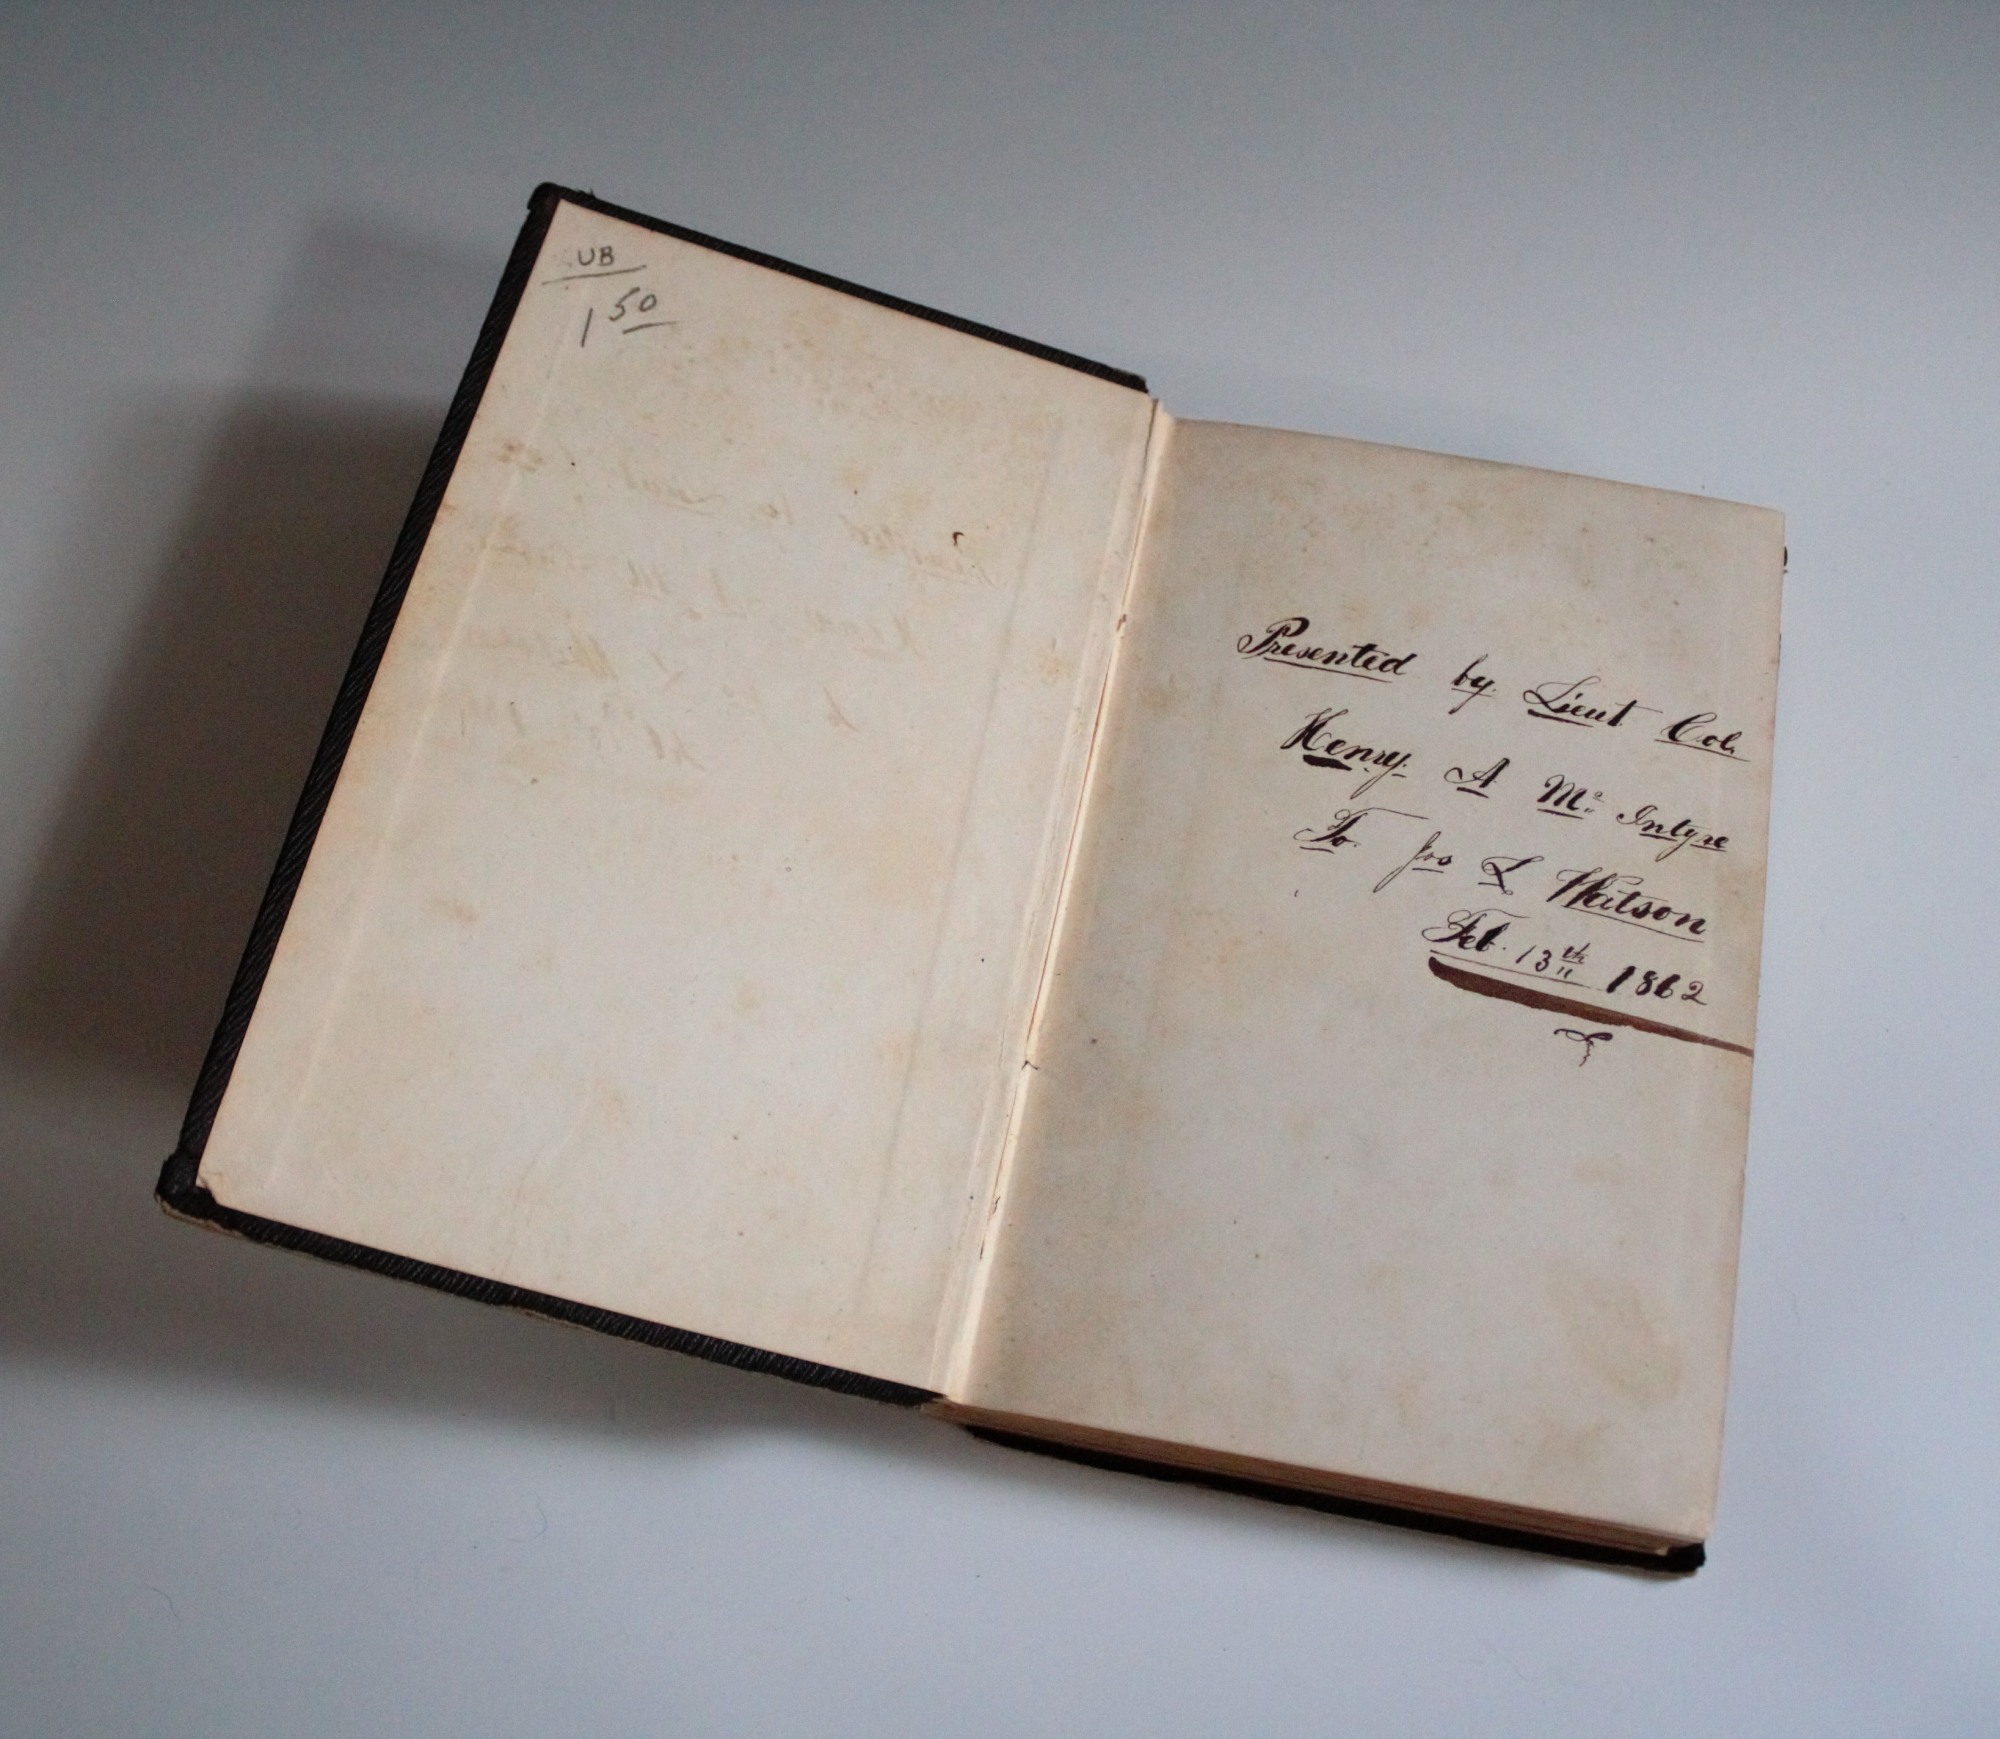 UB
1 50
Presented by Lieut Col.
Henry A Mc Intyre
To Jos L Watson
Feb. 13th 1862